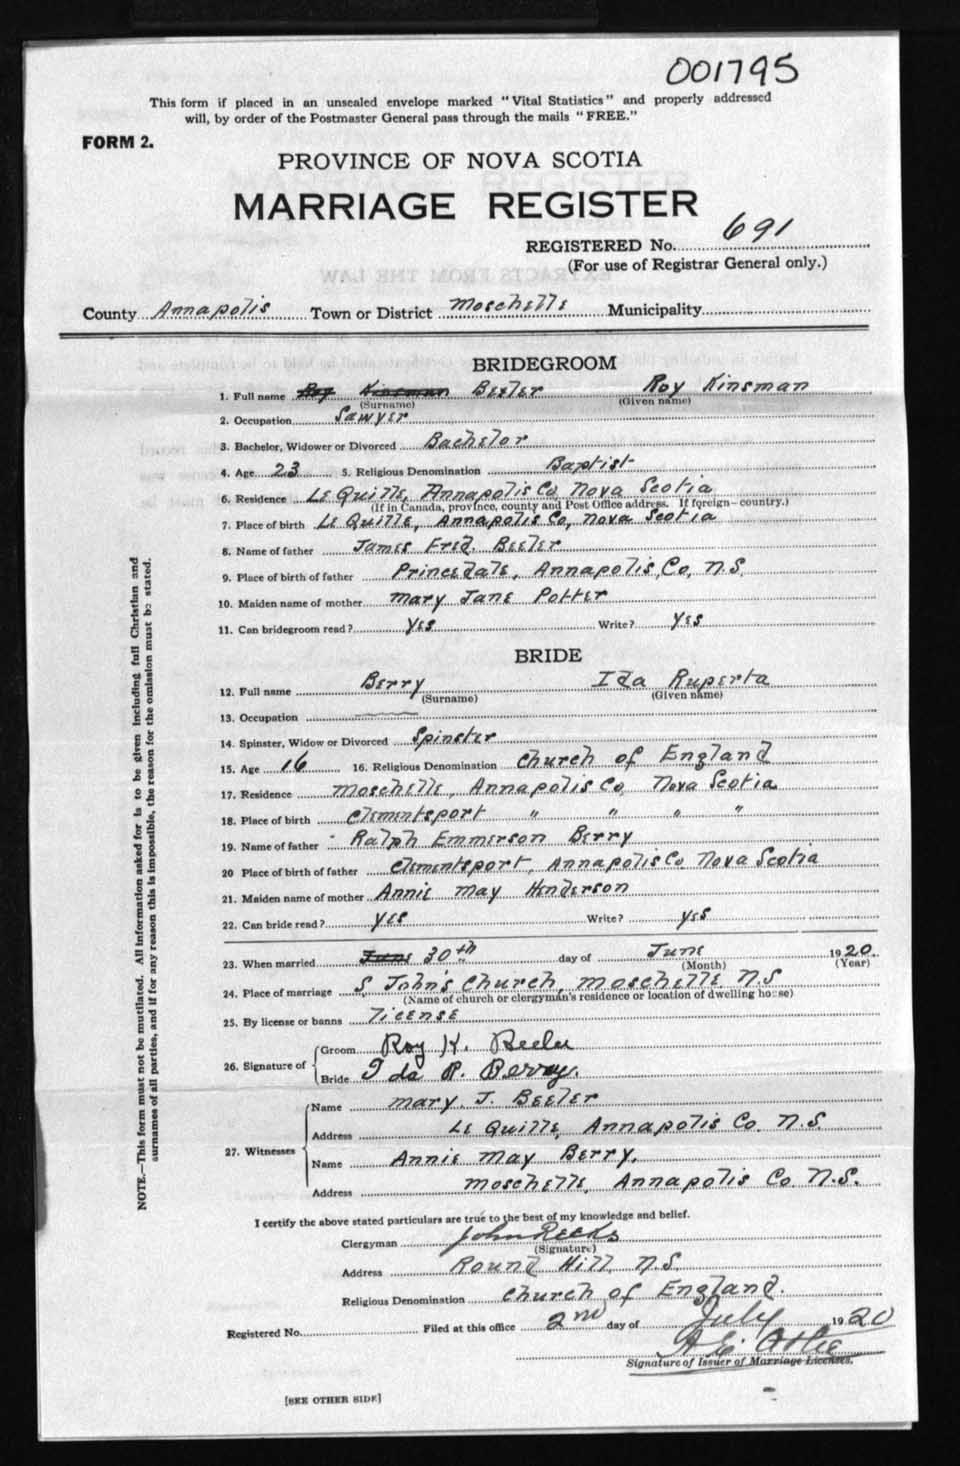 001795
This form if placed in an unsealed envelope marked "Vital Statistics" and properly addressed
will, by order of the Postmaster General pass through the mails "FREE."
FORM 2.
PROVINCE OF NOVA SCOTIA
MARRIAGE REGISTER
REGISTERED No. 691
(For use of Registrar General only.)
County Annapolis Town or District Moschelle Municipality
BRIDEGROOM
1. Full name Roy Kinsman Beeler Roy Kinsman
(Surname) (Given name)
2. Occupation Sawyer
3. Bachelor, Widower or Divorced Bachelor
4. Age 23 5. Religious Denomination Baptist
6. Residence Le Quille, Annapolis Co, Nova Scotia
(If in Canada, province, county and Post Office address. If foreign—country.)
7. Place of birth Le Quille, Annapolis Co, Nova Scotia
8. Name of father James Fred. Beeler
9. Place of birth of father Princedale, Annapolis, Co, N.S.
10. Maiden name of mother Mary Jane Potter
11. Can bridegroom read? Yes Write? Yes
BRIDE
12. Full name Berry Ida Ruperta
(Surname) (Given name)
13. Occupation
14. Spinster, Widow or Divorced Spinster
15. Age 16 16. Religious Denomination Church of England
17. Residence Moschelle, Annapolis Co, Nova Scotia
18. Place of birth Clementsport " " " "
19. Name of father Ralph Emmerson Berry
20 Place of birth of father Clementsport, Annapolis Co Nova Scotia
21. Maiden name of mother Annie May Henderson
22. Can bride read? Yes Write? Yes
23. When married June 30th day of June 1920.
(Month) (Year)
24. Place of marriage S. John's Church, Moschelle N.S
(Name of church or clergyman's residence or location of dwelling house)
25. By license or banns License
26. Signature of Groom Roy K. Beeler
Bride Ida R. Berry.
27. Witnesses Name Mary. J. Beeler
Address Le Quille, Annapolis Co. N.S.
Name Annie May Berry,
Address Moschelle, Annapolis Co. N.S.
I certify the above stated particulars are true to the best of my knowledge and belief.
Clergyman John Reeks
(Signature)
Address Round Hill, N.S.
Religious Denomination Church of England.
Registered No. Filed at this office 2nd day of July 1920
Signature of Issuer of Marriage Licenses.
[SEE OTHER SIDE]
NOTE.—This form must not be mutilated. All information asked for is to be given including full Christian and
surnames of all parties, and if for any reason this is impossible, the reason for the omission must be stated.